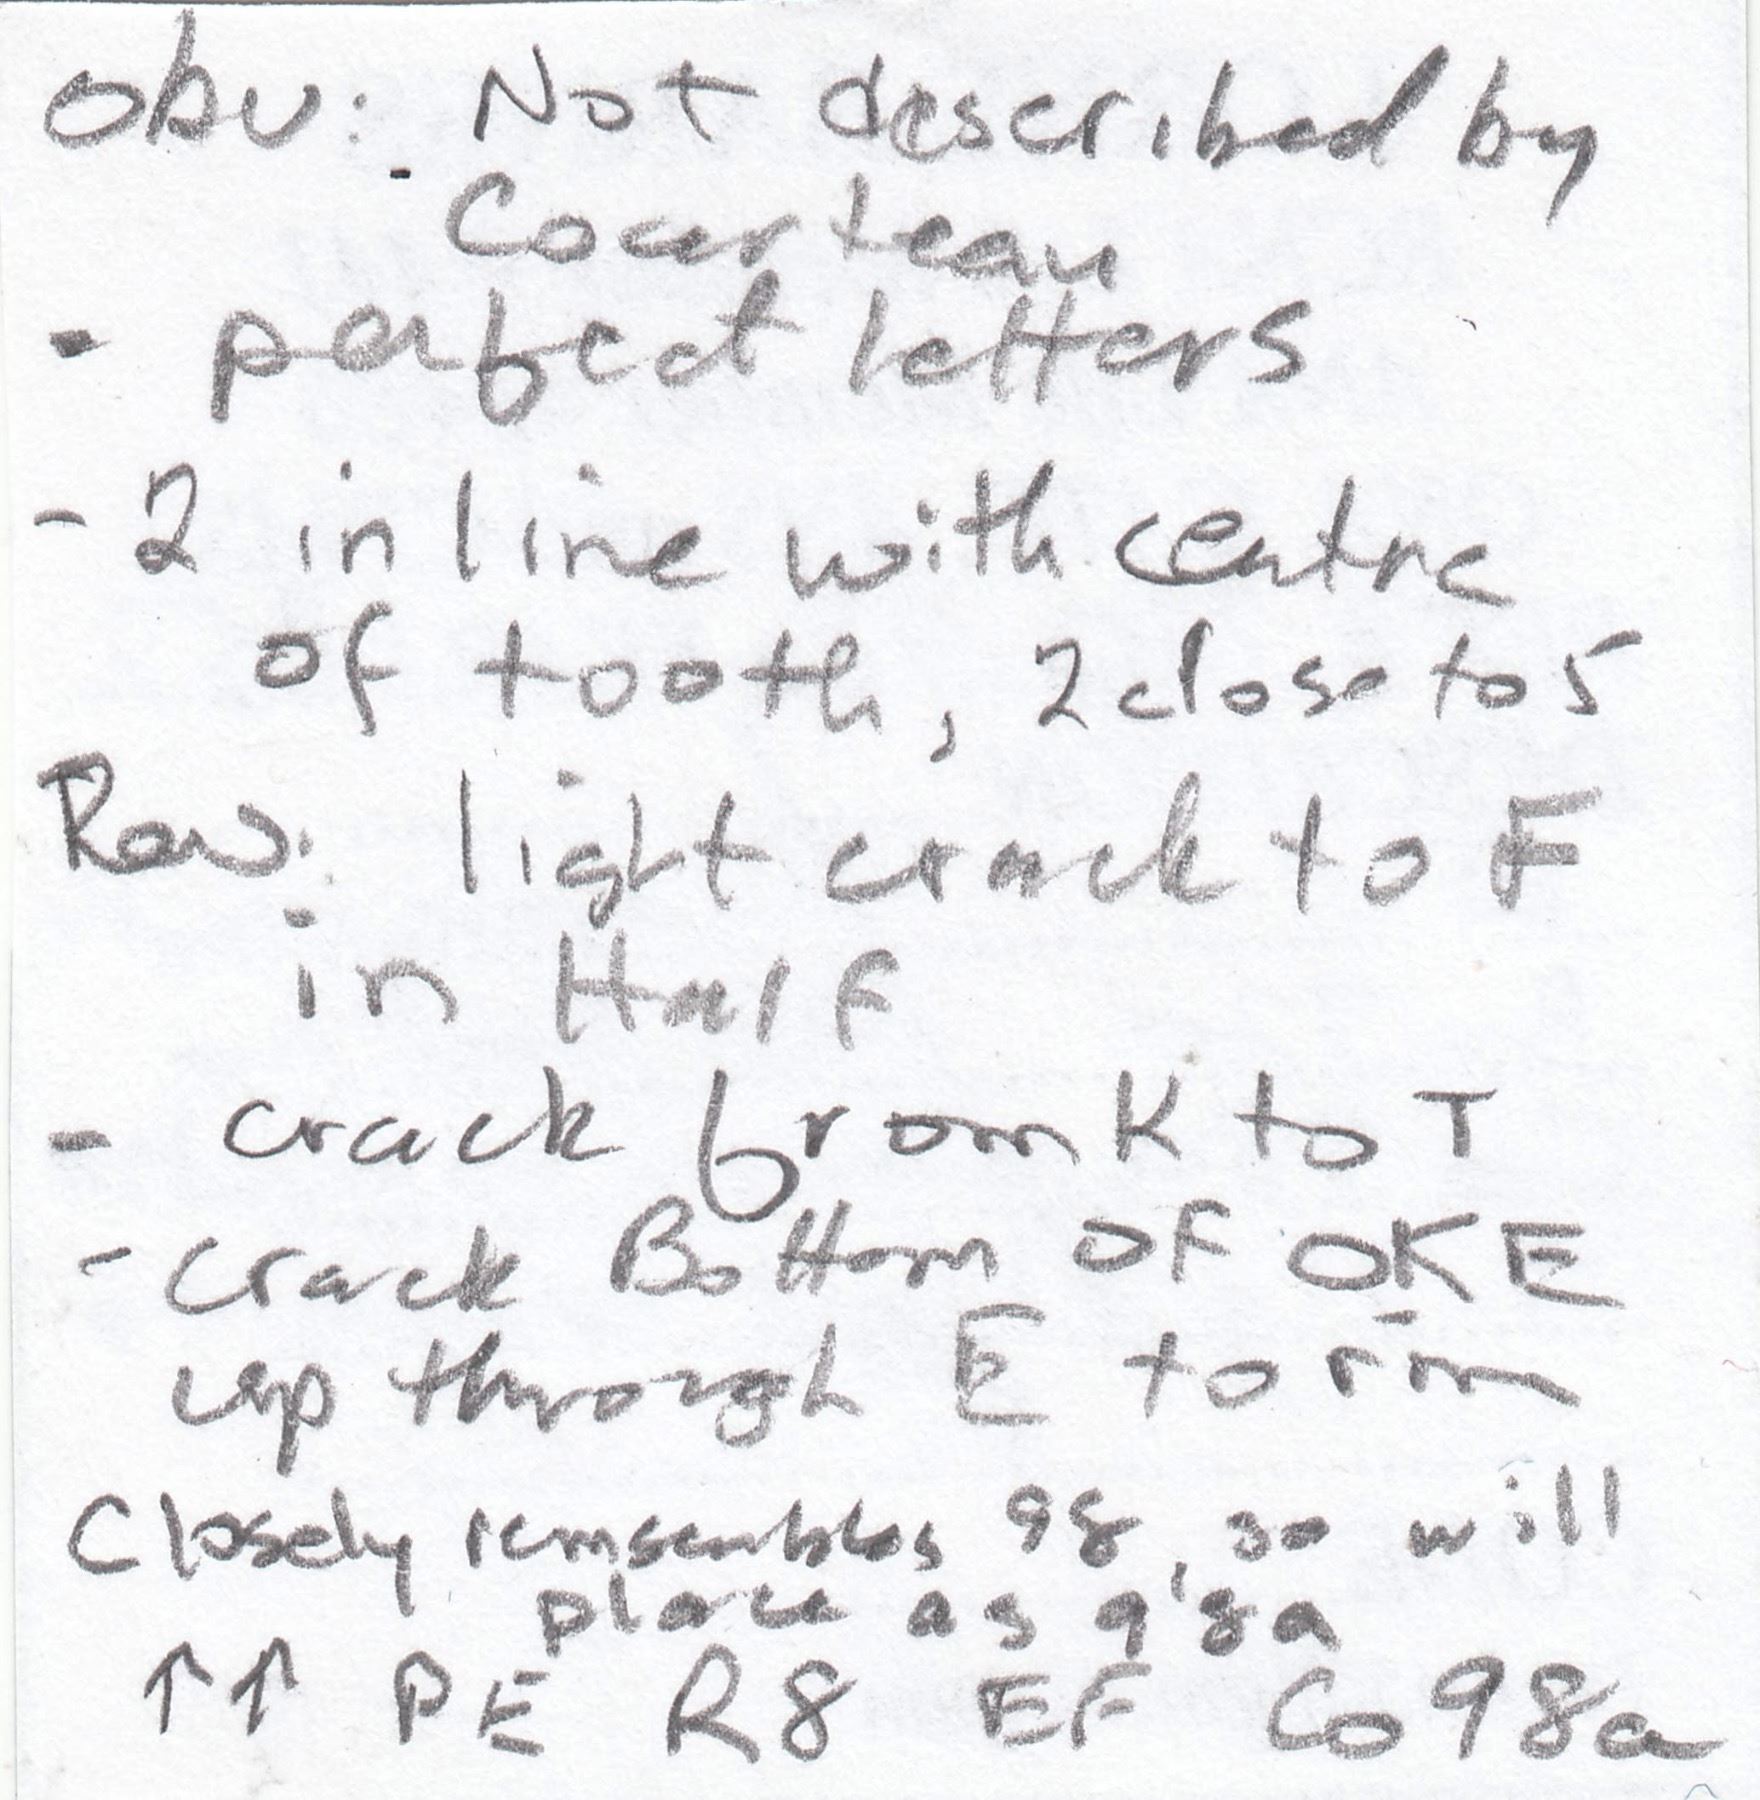 Obv: Not described by
Courteau
- perfect letters
- 2 in line with centre
of tooth, 2 close to 5
Rev: light crack to F
in Half
- crack from K to T
- crack Bottom OF OKE
up through E to rim
Closely remsembles 98, so will
place as 98a
↑↑ PE R8 EF Co98a